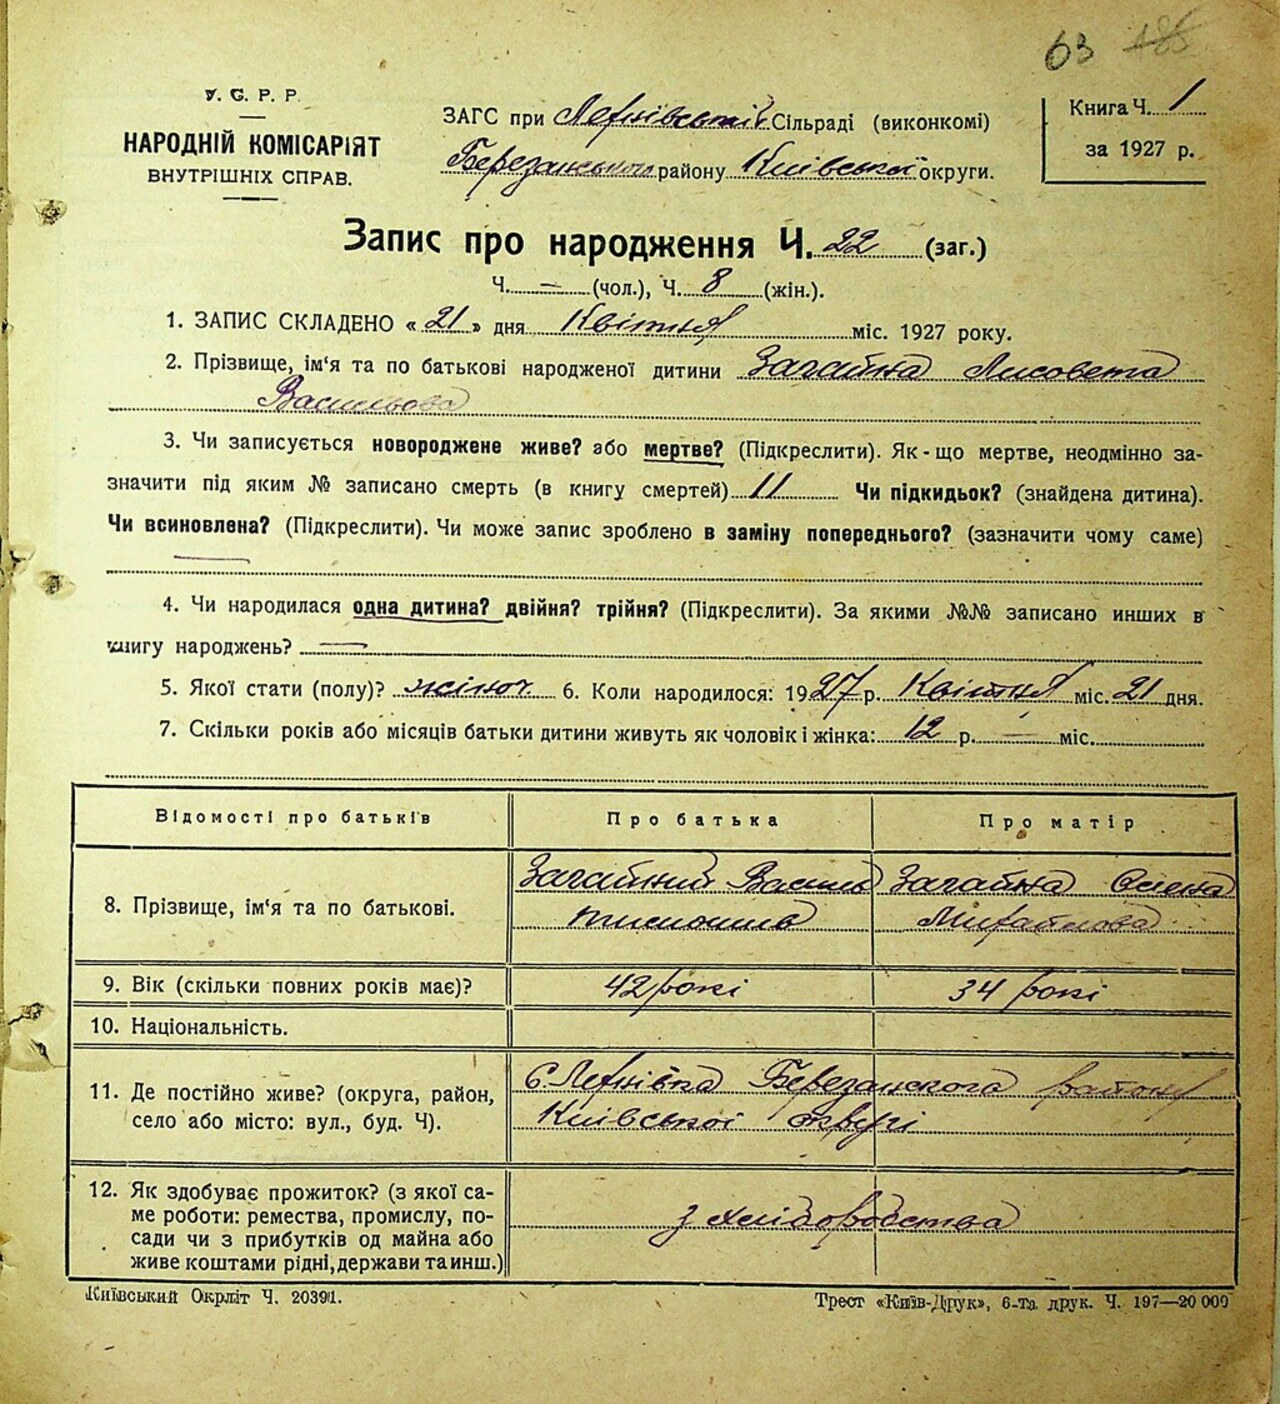 63 185
У. С. Р. Р.
НАРОДНІЙ КОМІСАРІЯТ
ВНУТРІШНІХ СПРАВ.
ЗАГС при Лехнівській Сільраді (виконкомі)
Березанського району Київської округи.
Книга Ч. 1
за 1927 р.
Запис про народження Ч. 22 (заг.)
Ч. — (чол.), Ч. 8 (жін.).
1. ЗАПИС СКЛАДЕНО «21» дня Квітня міс. 1927 року.
2. Прізвище, ім'я та по батькові народженої дитини Загайна Лисовета
Васильова
3. Чи записується новороджене живе? або мертве? (Підкреслити). Як-що мертве, неодмінно за-
значити під яким № записано смерть (в книгу смертей) 11 Чи підкидьок? (знайдена дитина).
Чи всиновлена? (Підкреслити). Чи може запис зроблено в заміну попереднього? (зазначити чому саме)
—
4. Чи народилася одна дитина? двійня? трійня? (Підкреслити). За якими №№ записано инших в
книгу народжень? —
5. Якої стати (полу)? жіноч. 6. Коли народилося: 1927 р. Квітня міс. 21 дня.
7. Скільки років або місяців батьки дитини живуть як чоловік і жінка: 12 р. — міс.
Відомості про батьків Про батька Про матір
8. Прізвище, ім'я та по батькові. Загайний Василь Загайна Олена
Михайлова
9. Вік (скільки повних років має)? 42 рокі 34 рокі
10. Національність.
11. Де постійно живе? (округа, район,
село або місто: вул., буд. Ч).
С. Лехнівка Березанского района
Київської округі
12. Як здобуває прожиток? (з якої са-
ме роботи: ремества, промислу, по-
сади чи з прибутків од майна або
живе коштами рідні, держави та инш.)
з хліборобства
Київський Окрліт Ч. 20391.
Трест «Київ-Друк», 6-та друк. Ч. 197—20 000